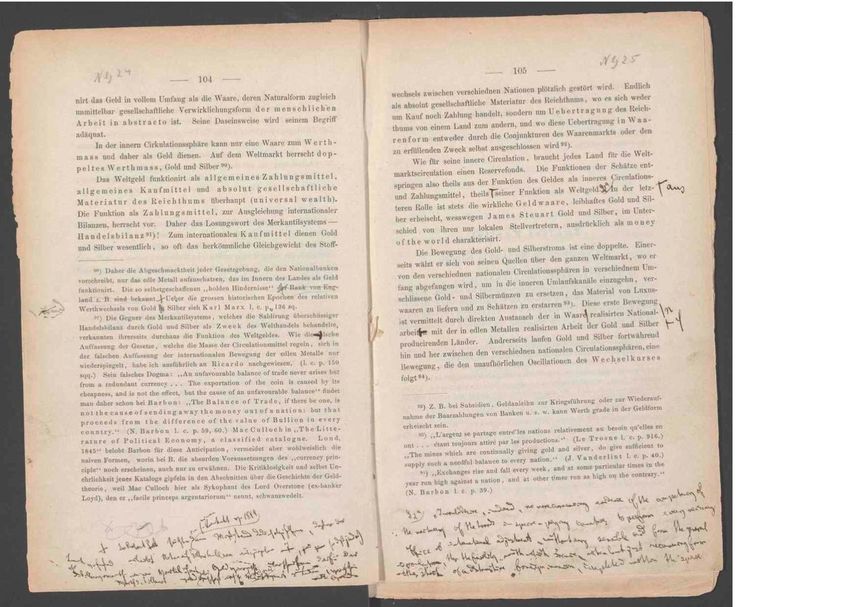 — 104 —
nirt das Geld in vollem Umfang als die Waare, deren Naturalform zugleich
unmittelbar gesellschaftliche Verwirklichungsform der menschlichen
Arbeit in abstracto ist. Seine Daseinsweise wird seinem Begriff
adäquat.
In der innern Cirkulationssphäre kann nur eine Waare zum Werth-
mass und daher als Geld dienen. Auf dem Weltmarkt herrscht dop-
peltes Werthmass, Gold und Silber 90).
Das Weltgeld funktionirt als allgemeines Zahlungsmittel,
allgemeines Kaufmittel und absolut gesellschaftliche
Materiatur des Reichthums überhaupt (universal wealth).
Die Funktion als Zahlungsmittel, zur Ausgleichung internationaler
Bilanzen, herrscht vor. Daher das Losungswort des Merkantilsystems —
Handelsbilanz 91)! Zum internationalen Kaufmittel dienen Gold
und Silber wesentlich, so oft das herkömmliche Gleichgewicht des Stoff-
90) Daher die Abgeschmacktheit jeder Gesetzgebung, die den Nationalbanken
vorschreibt, nur das edle Metall aufzuschatzen, das im Innern des Landes als Geld
funktionirt. Die so selbstgeschaffenen „holden Hindernisse" der Bank von Eng-
land z. B. sind bekannt. Ueber die grossen historischen Epochen des relativen
Werthwechsels von Gold Silber sich Karl Marx l. c. p. 136 sq.
91) Die Gegner des Merkantilsystems, welche die Saldirung überschüssiger
Handelsbilanz durch Gold und Silber als Zweck des Welthandels behandelte,
verkannten ihrerseits durchaus die Funktion des Weltgeldes. Wie die falsche
Auffassung der Gesetze, welche die Masse der Circulationsmittel regeln, sich in
der falschen Auffassung der internationalen Bewegung der edlen Metalle nur
wiederspiegelt, habe ich ausführlich an Ricardo nachgewiesen, (l. c. p. 150
sqq.) Sein falsches Dogma: „An unfavourable balance of trade never arises but
from a redundant currency . . . The exportation of the coin is caused by its
cheapness, and is not the effect, but the cause of an unfavourable balance" findet
man daher schon bei Barbon: „The Balance of Trade, if there be one, is
not the cause of sending away the money out of a nation: but that
proceeds from the difference of the value of Bullion in every
country." (N. Barbon l. c. p. 59, 60.) Mac Culloch in „The Litte-
rature of Political Economy, a classified catalogue. Lond.
1845" belobt Barbon für diese Anticipation, vermeidet aber wohlweislich die
naiven Formen, worin bei B. die absurden Voraussetzungen des „currency prin-
ciple" noch erscheinen, auch nur zu erwähnen. Die Kritiklosigkeit und selbst Un-
ehrlichkeit jenes Katalogs gipfeln in den Abschnitten über die Geschichte der Geld-
theorie, weil Mac Culloch hier als Sykophant des Lord Overstone (ex-banker
Loyd), den er „facile princeps argentariorum" nennt, schwanzwedelt.
— 105 —
wechsels zwischen verschiednen Nationen plötzlich gestört wird. Endlich
als absolut gesellschaftliche Materiatur des Reichthums, wo es sich weder
um Kauf noch Zahlung handelt, sondern um Uebertragung des Reich-
thums von einem Land zum andern, und wo diese Uebertragung in Waa-
renform entweder durch die Conjunkturen des Waarenmarkts oder den
zu erfüllenden Zweck selbst ausgeschlossen wird 92).
Wie für seine innere Circulation, braucht jedes Land für die Welt-
marktscirculation einen Reservefonds. Die Funktionen der Schätze ent-
springen also theils aus der Funktion des Geldes als inneres Circulations-
und Zahlungsmittel, theils seiner Funktion als Weltgeld. In der letz-
aus
teren Rolle ist stets die wirkliche Geldwaare, leibhaftes Gold und Sil-
ber erheischt, wesswegen James Steuart Gold und Silber, im Unter-
schied von ihren nur lokalen Stellvertretern, ausdrücklich als money
of the world charakterisirt.
Die Bewegung des Gold- und Silberstroms ist eine doppelte. Einer-
seits wälzt er sich von seinen Quellen über den ganzen Weltmarkt, wo er
von den verschiednen nationalen Circulationssphären in verschiednem Um-
fang abgefangen wird, um in die inneren Umlaufskanäle einzugehn, ver-
schlissene Gold- und Silbermünzen zu ersetzen, das Material von Luxus-
waaren zu liefern und zu Schätzen zu erstarren 93). Diese erste Bewegung
ist vermittelt durch direkten Austausch der in Waare realisirten National-
arbeit mit der in edlen Metallen realisirten Arbeit der Gold und Silber
producirenden Länder. Andrerseits laufen Gold und Silber fortwährend
hin und her zwischen den verschiednen nationalen Circulationssphären, eine
Bewegung, die den unaufhörlichen Oscillationen des Wechselkurses
folgt 94).
92) Z. B. bei Subsidien, Geldanleihn zur Kriegsführung oder zur Wiederauf-
nahme der Baarzahlungen von Banken u. s. w. kann Werth grade in der Geldform
erheischt sein.
93) „L'argent se partage entre les nations relativement au besoin qu'elles en
ont . . . étant toujours attiré par les productions." (Le Trosne l. c. p. 916.)
„The mines which are continually giving gold and silver, do give sufficient to
supply such a needful balance to every nation." (J. Vanderlint l. c. p. 40.)
94) „Exchanges rise and fall every week, and at some particular times in the
year run high against a nation, and at other times run as high on the contrary."
(N. Barbon l. c. p. 39.)